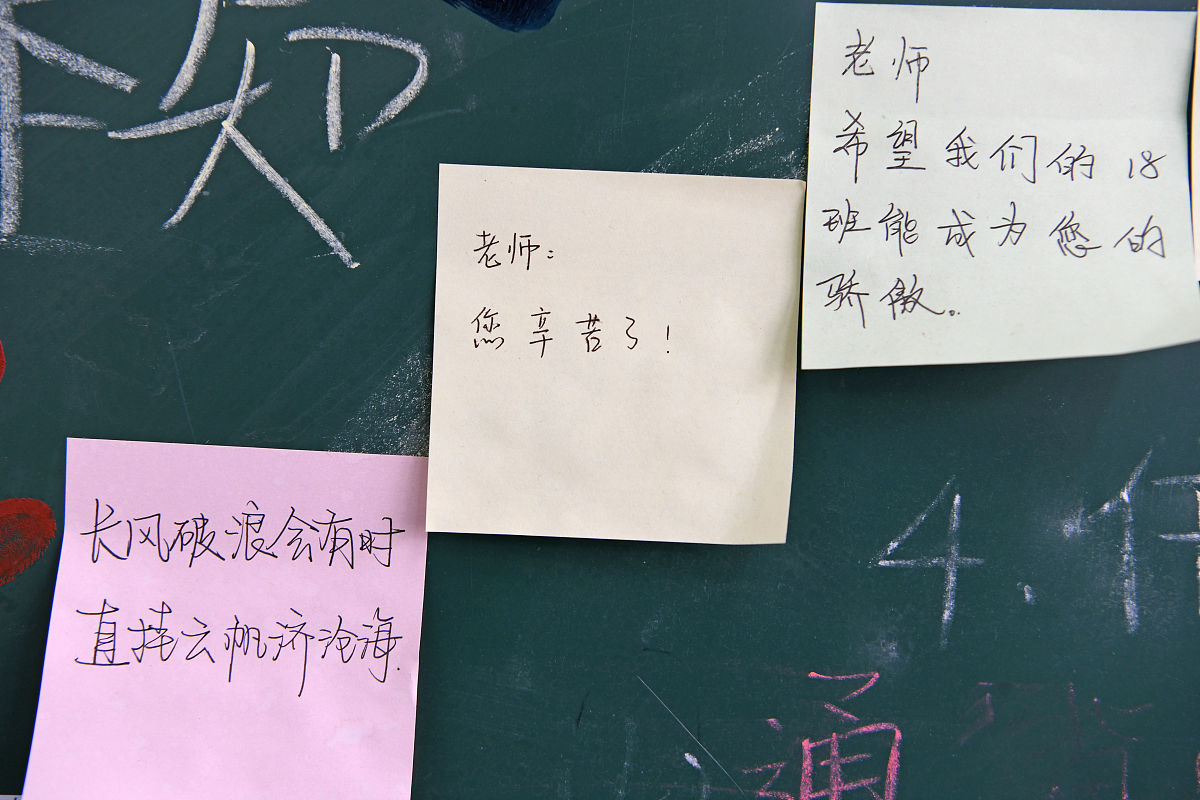 老师
希望我们的18
班能成为您的
骄傲。
老师：
您辛苦了！
长风破浪会有时
直挂云帆济沧海.
4.
通